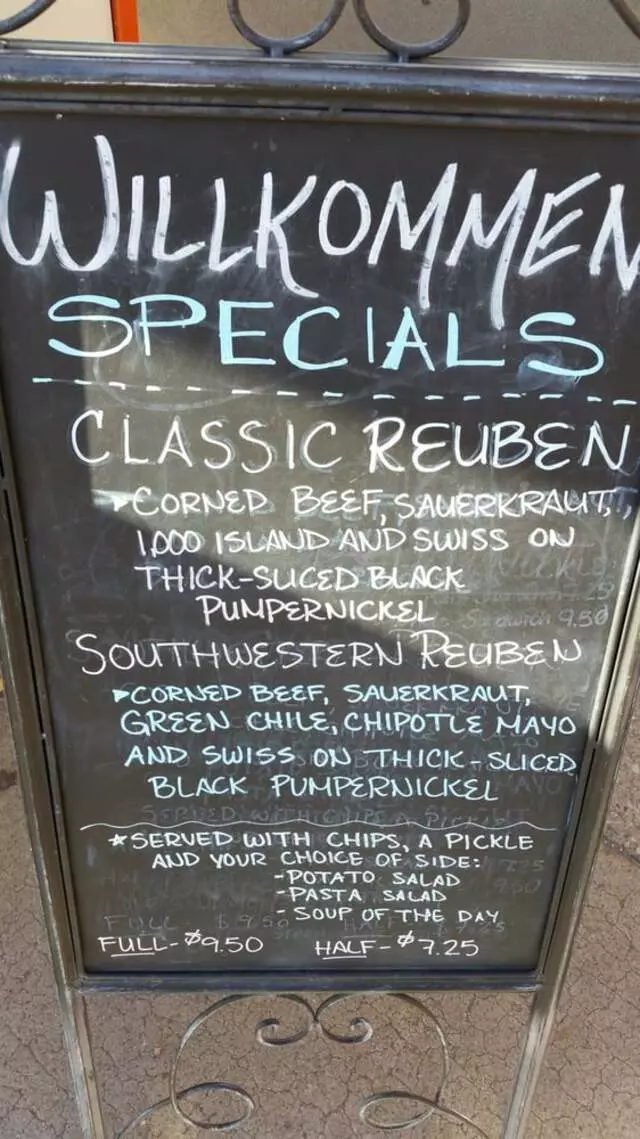 WILLKOMMEN
SPECIALS
CLASSIC REUBEN
CORNED BEEF, SAUERKRAUT,
1,000 ISLAND AND SWISS ON
THICK-SLICED BLACK
PUMPERNICKEL
SOUTHWESTERN REUBEN
CORNED BEEF, SAUERKRAUT,
GREEN CHILE, CHIPOTLE MAYO
AND SWISS ON THICK-SLICED
BLACK PUMPERNICKEL
*SERVED WITH CHIPS, A PICKLE
AND YOUR CHOICE OF SIDE:
-POTATO SALAD
-PASTA SALAD
-SOUP OF THE DAY
FULL-$9.50 HALF-$7.25